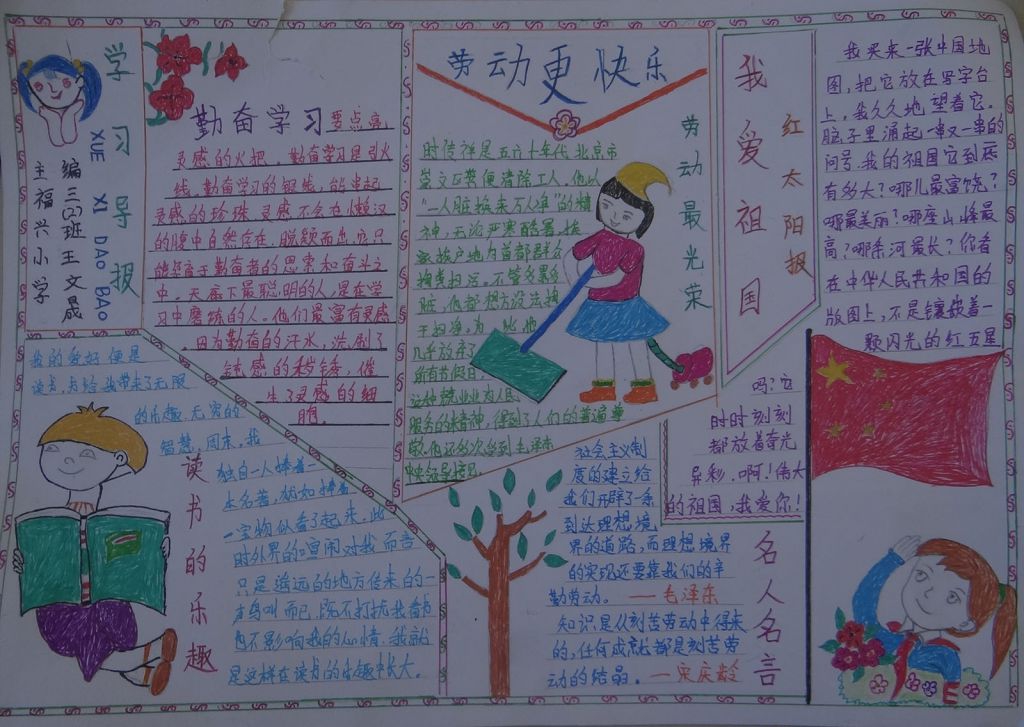 学习导报
XUE XI DAO BAO
主编
福兴小学
三(2)班 王文晟
勤奋学习 要点亮
灵感的火把。勤奋学习是引火
线,勤奋学习的银线,能串起
灵感的珍珠。灵感不会在懒汉
的腹中自然存在,脱颖而出,它只
能寄于勤奋者的思索和奋斗之
中。天底下最聪明的人,是在学
习中磨练的人。他们最富有灵感
。因为勤奋的汗水,洗刷了
钝感的锈,催
生了灵感的细
胞。
劳动更快乐
劳动最光荣
时传祥是五六十年代北京市
崇文区粪便清除工人。他以
“一人脏换来万人净”的精
神,无论严寒酷暑,挨
家挨户地为首都群众
掏粪扫污。不管多累多
脏,他都想方设法掏
干扫净,为此,他
几乎放弃了
所有节假日
这种兢业业为人民
服务的精神,得到了人们的普遍尊
敬。他还多次受到毛泽东
我爱祖国
红太阳报
我买来一张中国地
图,把它放在写字台
上,我久久地望着它。
脑子里涌起一串又一串的
问号。我的祖国它到底
有多大?哪儿最富饶?
哪最美丽?哪座山峰最
高?哪条河最长?你看
在中华人民共和国的
版图上,不是镶嵌着一
颗闪光的红五星
吗?它
时时刻刻
都放着奇光
异彩。啊!伟大
的祖国,我爱你!
读书的乐趣
我的爱好便是
读书,书给我带来了无限
的乐趣,无穷的
智慧。周末,我
独自一人捧着一
本名著,犹如捧着
一宝物似看了起来,此
时外界的喧闹对我而言
只是遥远的地方传来的一
声鸟叫而已,既不打扰我看书
也不影响我的心情。我就
是这样在读书的乐趣中长大。
名人名言
社会主义制
度的建立给
我们开辟了一条
到达理想境
界的道路,而理想境界
的实现还要靠我们的辛
勤劳动。 —毛泽东
知识是从刻苦劳动中得来
的,任何成就都是刻苦劳
动的结晶。—宋庆龄